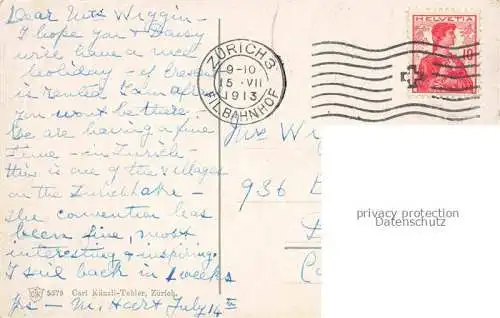 Dear Mrs Wiggin -
I hope you & Daisy
will have a nice
holiday - if Crescent
is rented I am afraid
you won't be there -
We are having a fine
time - in Zurich -
this is one of the villages
on the Zurich Lake -
The convention has
been fine, most
interesting & inspiring.
I sail back in 2 weeks
Yrs - M. Hart July 14th
5379 Carl Künzli-Tobler, Zürich.
ZÜRICH 3
9-10
15 · VII
1913
FIL. BAHNHOF
HELVETIA
10
Mrs Wi
936
privacy protection
Datenschutz